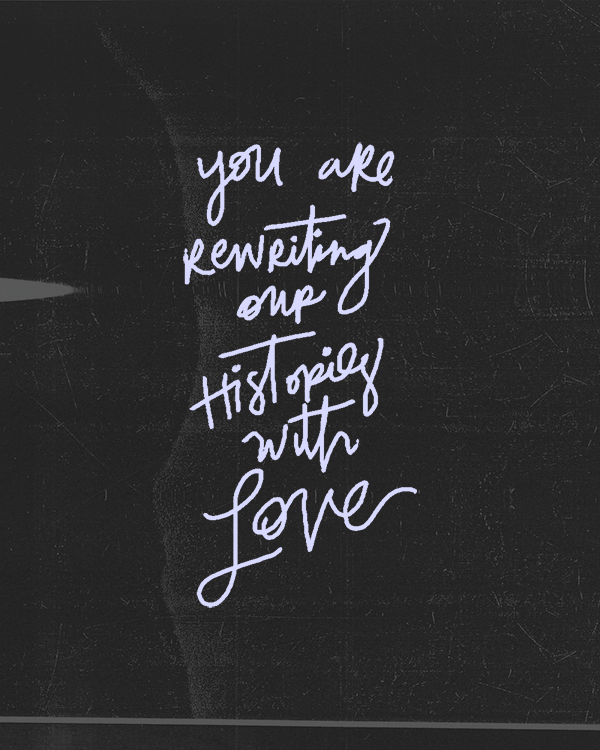 you are
rewriting
our
History
with
Love